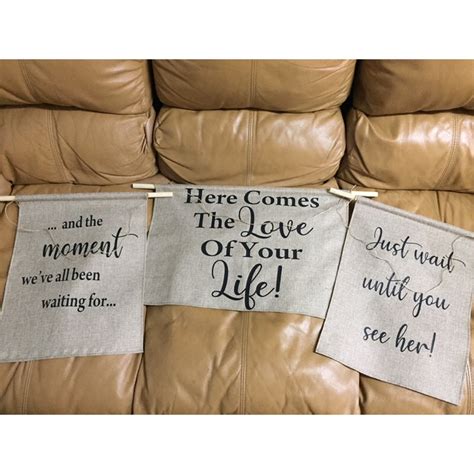 ... and the
moment
we've all been
waiting for...
Here Comes
The Love
Of Your
Life!
Just wait
until you
see her!